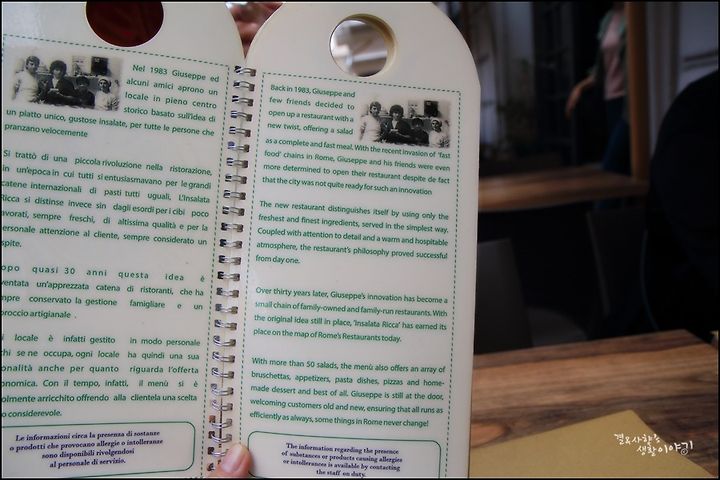 Nel 1983 Giuseppe ed
alcuni amici aprono un
locale in pieno centro
storico basato sull'idea di
un piatto unico, gustose insalate, per tutte le persone che
pranzano velocemente
Si trattò di una piccola rivoluzione nella ristorazione,
in un'epoca in cui tutti si entusiasmavano per le grandi
catene internazionali di pasti tutti uguali, L'Insalata
Ricca si distinse invece sin dagli esordi per i cibi poco
lavorati, sempre freschi, di altissima qualità e per la
personale attenzione al cliente, sempre considerato un
spite.
opo quasi 30 anni questa idea è
ventata un'apprezzata catena di ristoranti, che ha
mpre conservato la gestione famigliare e un
proccio artigianale .
i locale è infatti gestito in modo personale
chi se ne occupa, ogni locale ha quindi una sua
onalità anche per quanto riguarda l'offerta
onomica. Con il tempo, infatti, il menù si è
olmente arricchito offrendo alla clientela una scelta
o considerevole.
Le informazioni circa la presenza di sostanze
o prodotti che provocano allergie o intolleranze
sono disponibili rivolgendosi
al personale di servizio.
Back in 1983, Giuseppe and
few friends decided to
open up a restaurant with a
new twist, offering a salad
as a complete and fast meal. With the recent invasion of 'fast
food' chains in Rome, Giuseppe and his friends were even
more determined to open their restaurant despite de fact
that the city was not quite ready for such an innovation
The new restaurant distinguishes itself by using only the
freshest and finest ingredients, served in the simplest way.
Coupled with attention to detail and a warm and hospitable
atmosphere, the restaurant's philosophy proved successful
from day one.
Over thirty years later, Giuseppe's innovation has become a
small chain of family-owned and family-run restaurants. With
the original idea still in place, 'Insalata Ricca' has earned its
place on the map of Rome's Restaurants today.
With more than 50 salads, the menù also offers an array of
bruschettas, appetizers, pasta dishes, pizzas and home-
made dessert and best of all. Giuseppe is still at the door,
welcoming customers old and new, ensuring that all runs as
efficiently as always, some things in Rome never change!
The information regarding the presence
of substances or products causing allergies
or intollerances is available by contacting
the staff on duty.
생활이야기